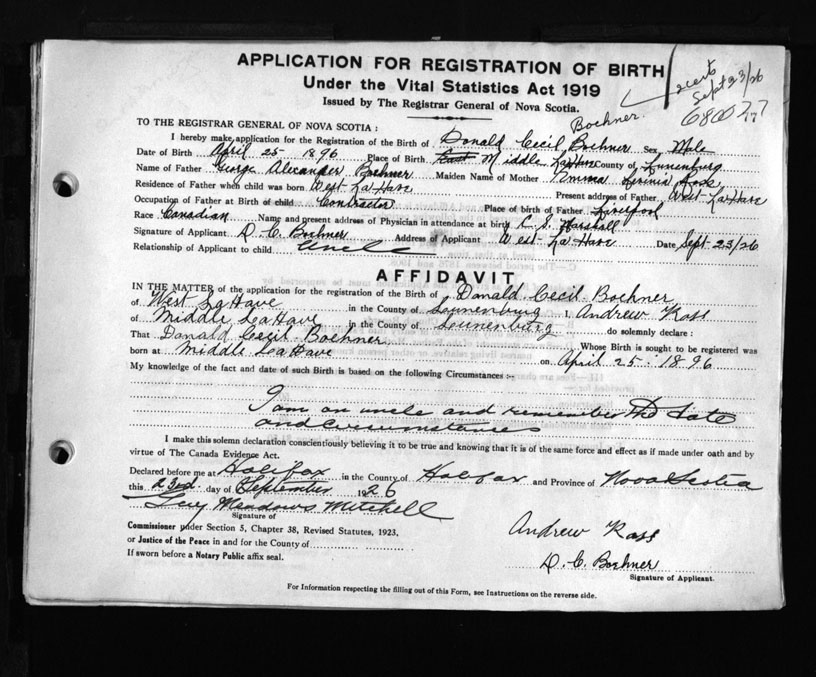 APPLICATION FOR REGISTRATION OF BIRTH
Under the Vital Statistics Act 1919
Issued by The Registrar General of Nova Scotia.
2 certs
Sept 23/26
680077
TO THE REGISTRAR GENERAL OF NOVA SCOTIA :
Boehner.
I hereby make application for the Registration of the Birth of Donald Cecil Boehner Sex Male
Date of Birth April 25 1896 Place of Birth East Middle LaHave County of Lunenburg
Name of Father George Alexander Boehner Maiden Name of Mother Emma Lavinia
Residence of Father when child was born West LaHave Present address of Father, West LaHave
Occupation of Father at Birth of child Contractor Place of birth of Father Liverpool
Race Canadian Name and present address of Physician in attendance at birth C. S. Marshall
Signature of Applicant D. C. Boehner Address of Applicant West LaHave Date Sept 23/26
Relationship of Applicant to child Uncle
AFFIDAVIT
IN THE MATTER of the application for the registration of the Birth of Donald Cecil Boehner
of West LaHave in the County of Lunenburg I, Andrew Ross
of Middle LaHave in the County of Lunenburg do solemnly declare :
That Donald Cecil Boehner Whose Birth is sought to be registered was
born at Middle LaHave on April 25 1896
My knowledge of the fact and date of such Birth is based on the following Circumstances :-
I am an uncle and remember the date
and circumstances
I make this solemn declaration conscientiously believing it to be true and knowing that it is of the same force and effect as if made under oath and by
virtue of The Canada Evidence Act.
Declared before me at Halifax in the County of Halifax and Province of Nova Scotia
this 23rd. day of September 1926
Meadows Mitchell
Signature of
Commissioner under Section 5, Chapter 38, Revised Statutes, 1923,
or Justice of the Peace in and for the County of
If sworn before a Notary Public affix seal.
Andrew Ross
D. C. Boehner
Signature of Applicant.
For Information respecting the filling out of this Form, see Instructions on the reverse side.